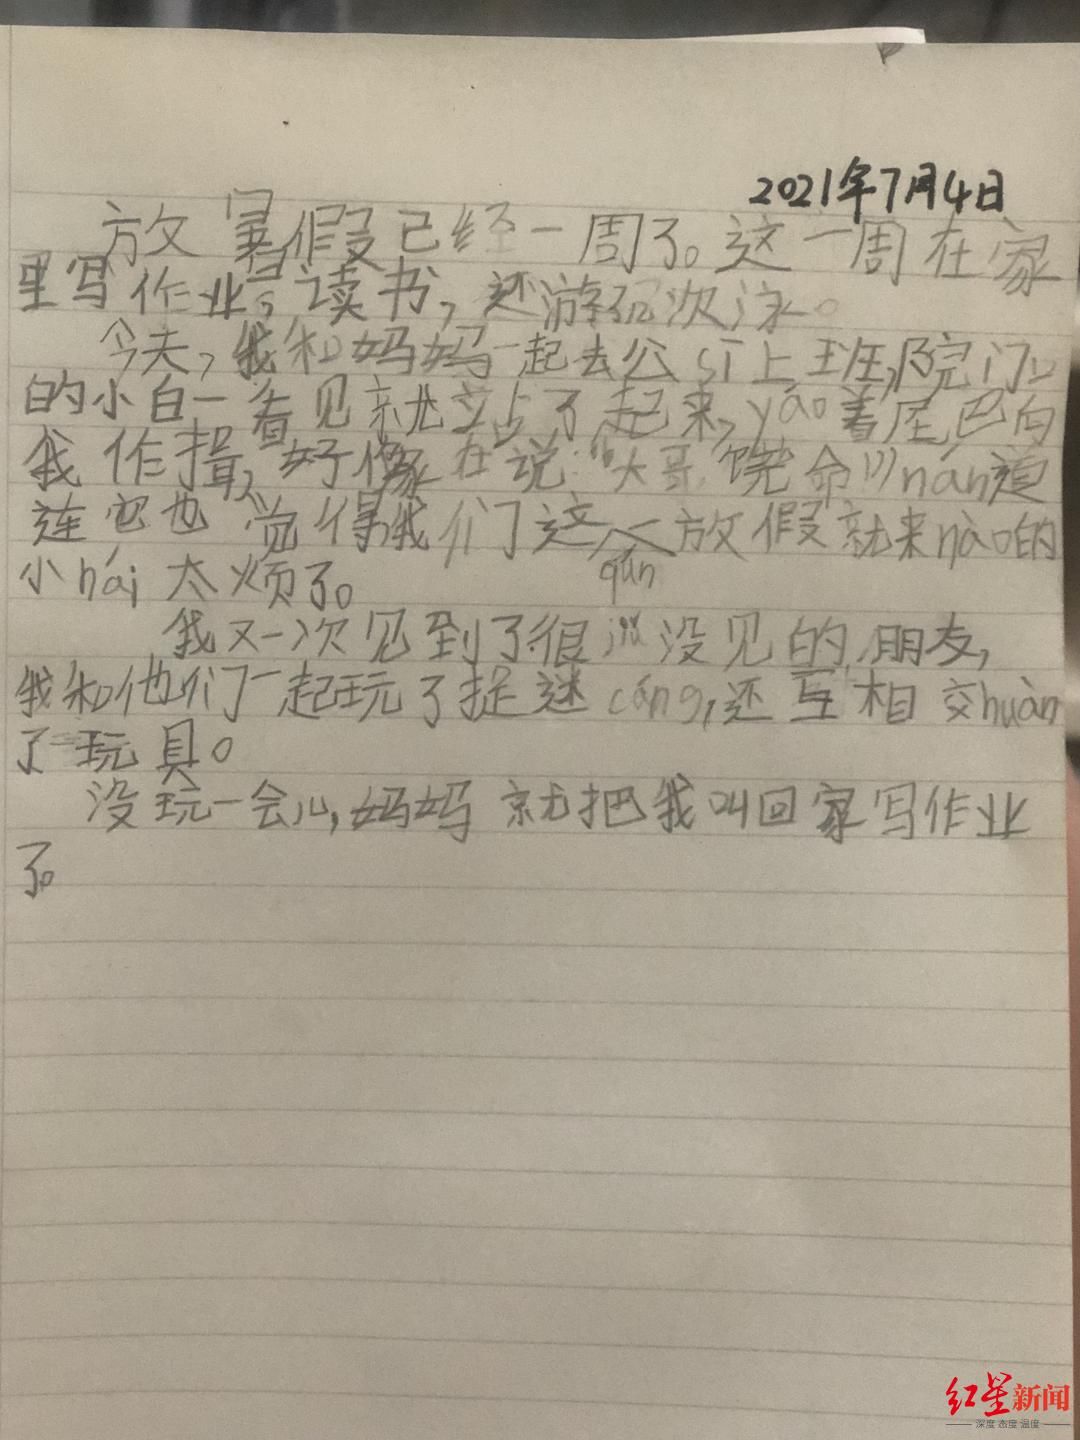 2021年7月4日
放暑假已经一周了。这一周在家
里写作业，读书，还游了几次泳。
今天，我和妈妈一起去公sī上班，院门口
的小白一看见就立占了起来，yáo着尾巴向
我作揖，好像在说：“大哥饶命！”nán道
连它也觉得我们这qún一放假就来nào的
小hái太烦了。
我又一次见到了很jiǔ没见的朋友，
我和他们一起玩了捉迷cáng，还互相交huàn
了玩具。
没玩一会儿，妈妈就把我叫回家写作业
了。
红星新闻
深度 态度 温度